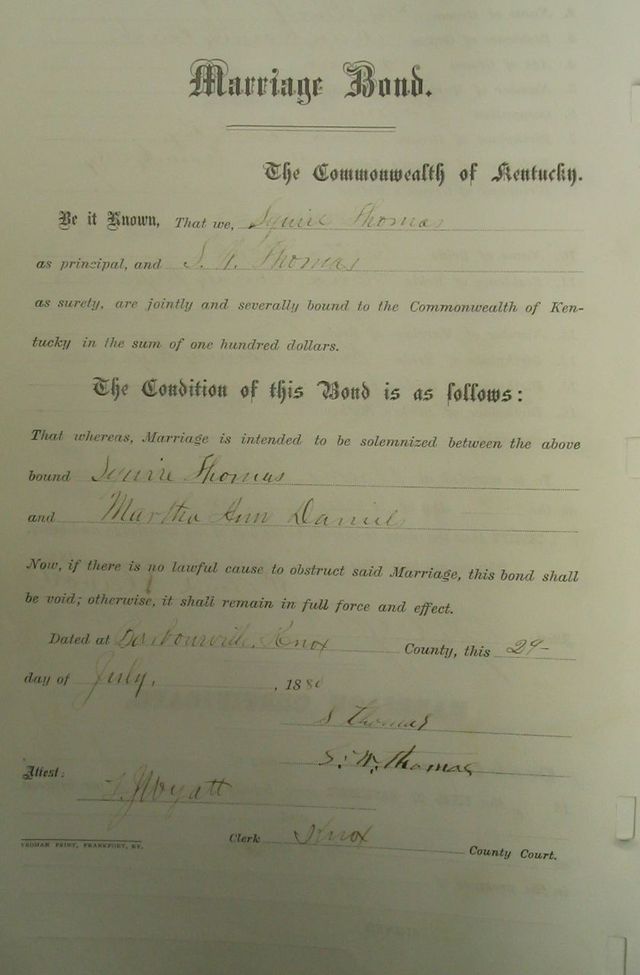 Marriage Bond.
The Commonwealth of Kentucky.
Be it Known, That we, Squire Thomas
as principal, and S. W. Thomas
as surety, are jointly and severally bound to the Commonwealth of Ken-
tucky in the sum of one hundred dollars.
The Condition of this Bond is as follows:
That whereas, Marriage is intended to be solemnized between the above
bound Squire Thomas
and Martha Ann Daniel
Now, if there is no lawful cause to obstruct said Marriage, this bond shall
be void; otherwise, it shall remain in full force and effect.
Dated at Barbourville, Knox County, this 29-
day of July, , 188
S Thomas
S. W. Thomas
Attest:
Wyatt
Clerk Knox County Court.
YEOMAN PRINT, FRANKFORT, KY.